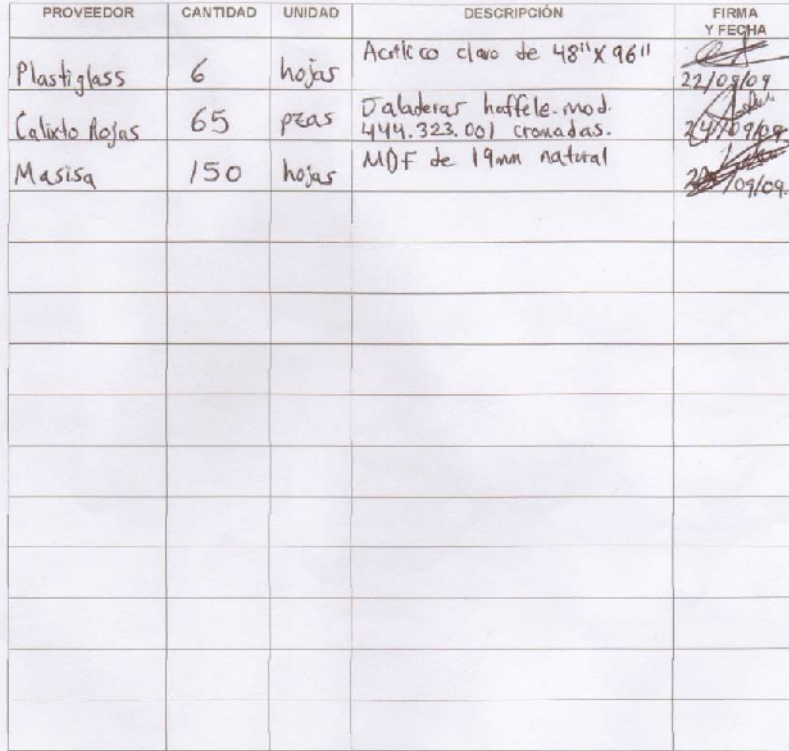 PROVEEDOR CANTIDAD UNIDAD DESCRIPCIÓN FIRMA
Y FECHA
Plastiglass 6 hojas Acrilico claro de 48" X 96"
22/09/09
Calixto Rojas 65 pzas Jaladeras haffele. mod.
444.323.001 cromadas.
24/09/09
Masisa 150 hojas MDF de 19mm natural
/09/09.